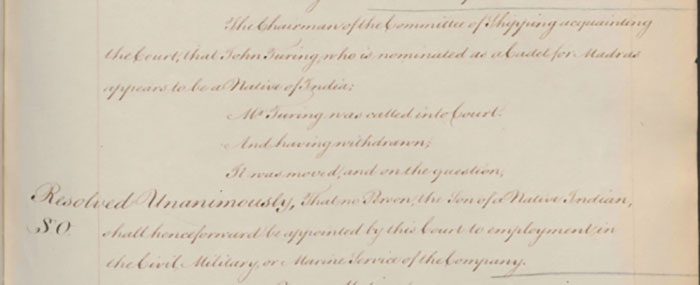 The Chairman of the Committee of Shipping acquainting
the Court, that John Turing, who is nominated as a Cadet for Madras
appears to be a Native of India;
Mr Turing was called into Court.
And having withdrawn;
It was moved, and on the question,
Resolved Unanimously, That no Person, the Son of a Native Indian,
shall henceforward be appointed by this Court to employment in
the Civil Military, or Marine Service of the Company.